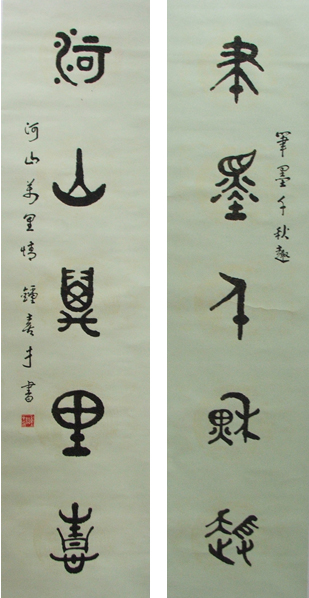 筆墨千秋趣
筆墨千秋趣
河山萬里情
河山萬里情 鍾喜才書